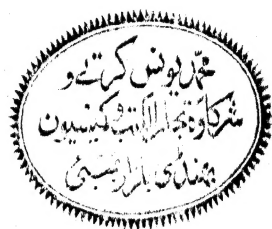 محمد یونس کرتے و
شرکاؤہ تجار الکتب و کمیسیون
بھنڈی بازار بمبئی